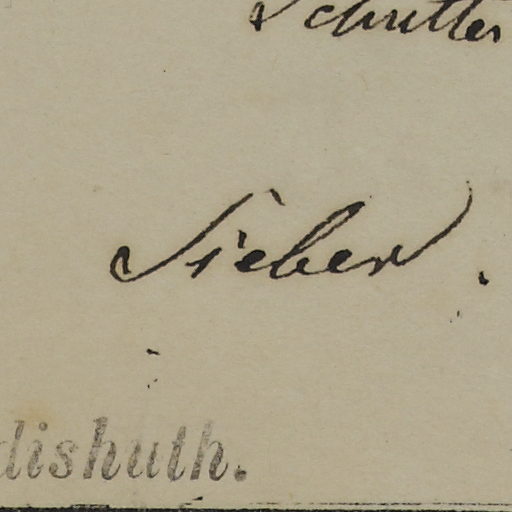 Schutter
Sieber.
dishuth.